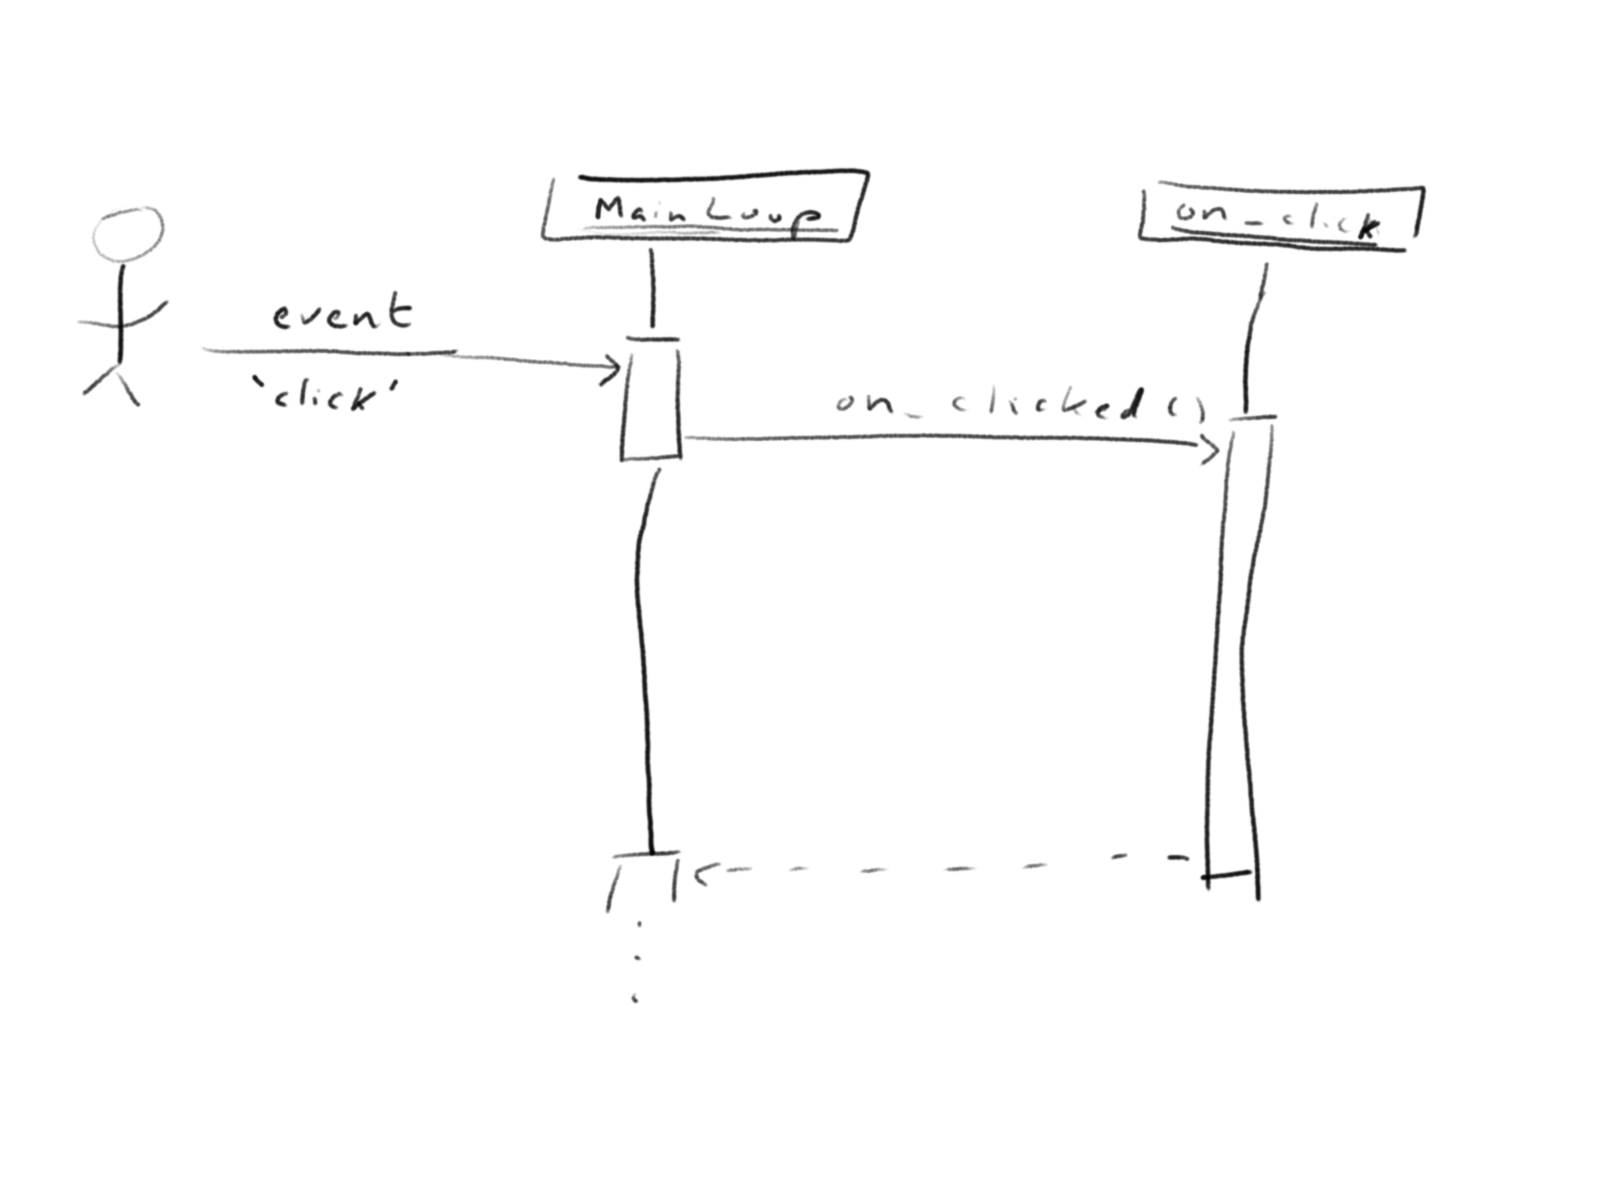 Main Loop
on_click
event
'click'
on_clicked()